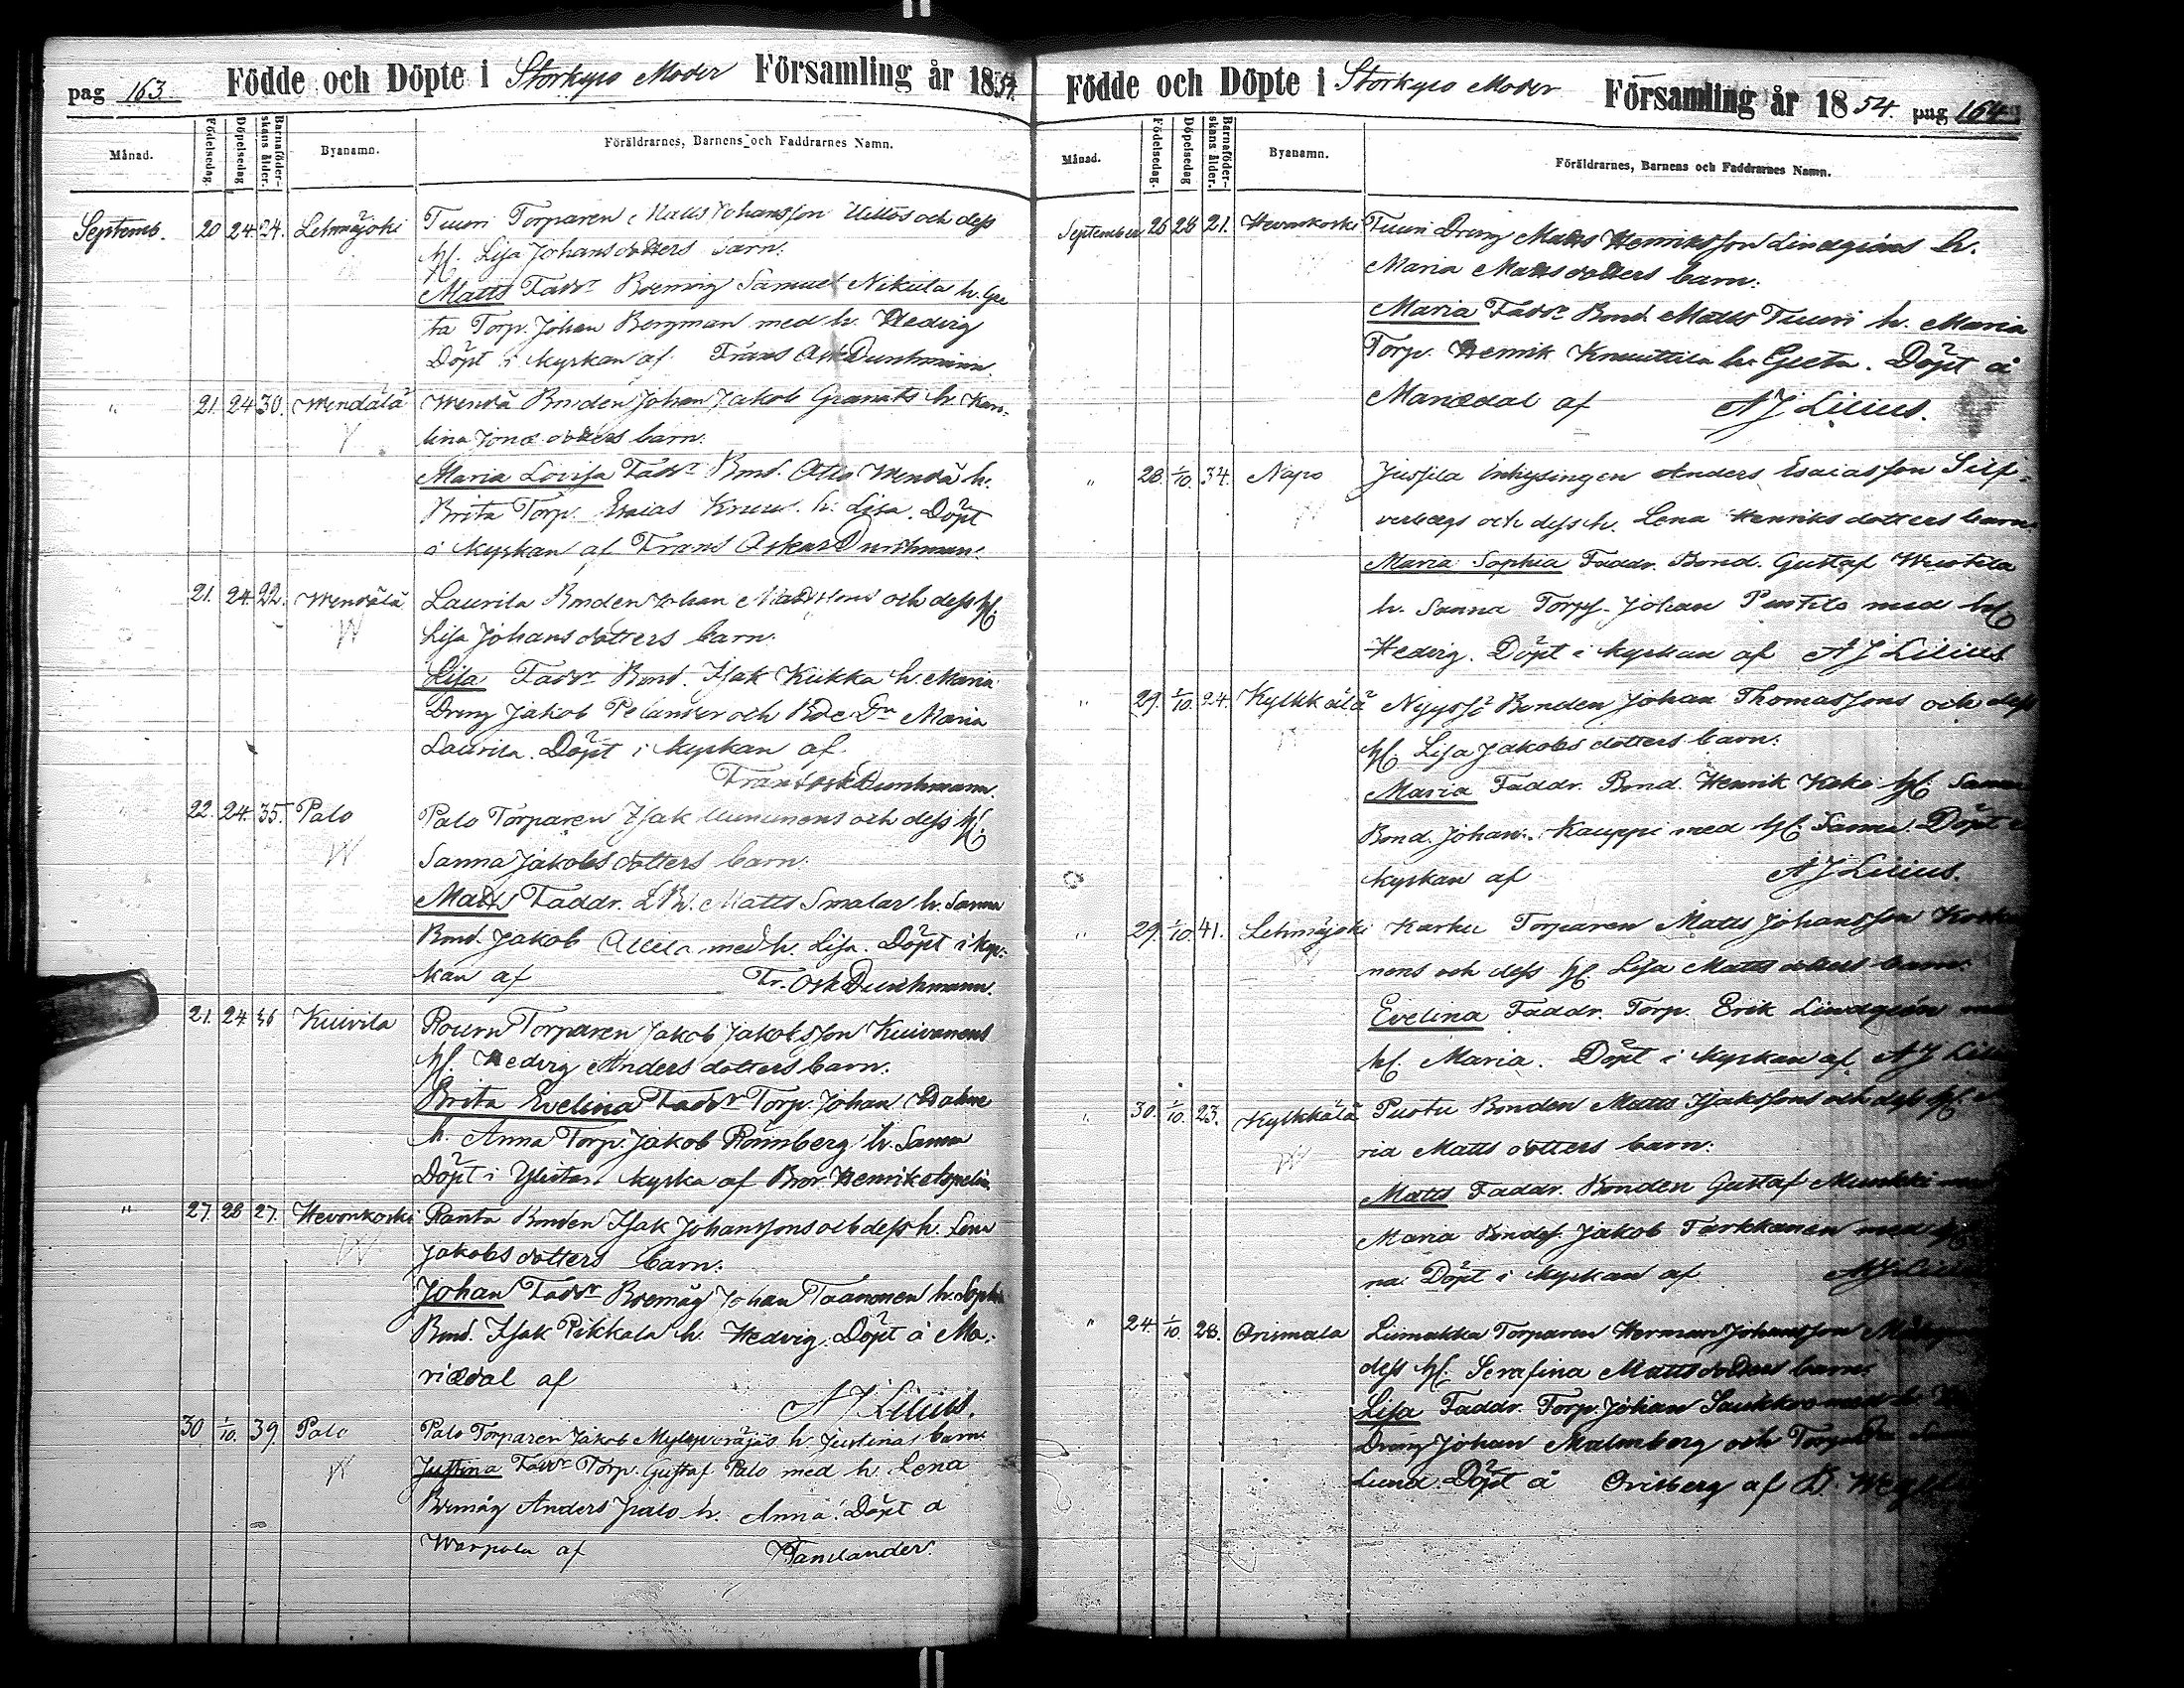 pag 163. Födde och Döpte i Storkyro Moder Församling år 1854.
Månad. Födelsedag. Döpelsedag Barnaföderskans ålder. Byanamn. Föräldrarnes, Barnens och Faddrarnes Namn.
Septemb. 20 24. 24. Lehmäjoki Tuuri Torparen Matts Johansson och dess
hf. Lisa Johansdotters barn.
Matts Fadd:r Bdemåg Samuel Nikula h. Gre
ta Torp. Johan Bergman med h. Hedvig
Döpt i kyrkan af Frans Osk Durchman.
" 21. 24 30. Wendälä Wendä Bonden Johan Jakob Granats h. Karo-
lina Jonæ dotters barn.
Maria Lovisa Fadd:r Bond. Otto Wendä h.
Brita Torp. Esaias h. Lisa. Döpt
i kyrkan af Frans Oskar Durchman.
21. 24. 22. Wendälä Laurila Bonden Johan Mattssons och dess hf.
Lisa Johansdotters barn.
Lisa Fadd:r Bond. Isak Kukka h. Maria
Dreng Jakob Pelander och Bde Dr Maria
Laurila. Döpt i kyrkan af
Frans Osk Durchmann.
" 22. 24. 35. Palo Palo Torparen Isak och dess hf.
Sanna Jakobsdotters barn.
Matts Faddr. Matts Smalar h. Sanna
Bond. Jakob med h. Lisa. Döpt i kyr-
kan af Fr. Osk Durchmann.
21. 24 36 Kuivila Torparen Jakob Jakobsson Kuivanens
hf. Hedvig Andersdotters barn.
Brita Evelina Fadd:r Torp. Johan
h. Anna Torp. Jakob Rönnberg h. Sanna
Döpt i Ylistaro kyrka af Bror Henrik Aspelin
" 27. 28 27. Hevonkoski Ranta Bonden Isak Johanssons och dess h. Lena
Jakobsdotters barn.
Johan Fadd:r Bdemåg Johan Taanonen h. Sophia
Bond. Isak Pikkala h. Hedvig. Döpt å Ma-
riædal af
A J Lilius.
30 1/10. 39. Palo Palo Torparen Jakob h. Justinas barn.
Justina Fadd:r Torp. Gustaf Palo med h. Lena
Bdemåg Anders Jralo h. Anna. Döpt å
Warpola af

Födde och Döpte i Storkyro Moder Församling år 1854. pag 164
Månad. Födelsedag. Döpelsedag Barnaföderskans ålder. Byanamn. Föräldrarnes, Barnens och Faddrarnes Namn.
September 26 28 21. Hevonkoski Tuuri Dreng Matts Henriksson Lindqvists h.
Maria Mattsdotters barn.
Maria Fadd:r Bond. Matts Tuuri h. Maria
Torp. Henrik Knuuttila h. Greta. Döpt å
Mariædal af A J Lilius.
" 28. 1/10. 34. Napo Jussila Inhysingen Anders Esaiasson Silf-
verbergs och dess h. Lena Henriksdotters barn.
Maria Sophia Faddr. Bond. Gustaf
h. Sanna Torp. Johan med hf
Hedvig. Döpt i kyrkan af A J Lilius
" 29. 1/10. 24. Kylkkälä Nyyssö Bonden Johan Thomassons och dess
hf. Lisa Jakobsdotters barn.
Maria Faddr. Bond. Henrik Koko hf. Sanna
Bond. Johan Kauppi med hf. Sanna. Döpt i
kyrkan af A J Lilius.
" 29. 1/10. 41. Lehmäjoki Karhu Torparen Matts Johansson
nens och dess hf. Lisa Mattsdotters barn.
Evelina Faddr. Torp. Erik Lindqvist
hf. Maria. Döpt i kyrkan af A J
" 30. 1/10. 23. Kylkkälä Bonden Matts Isakssons och dess hf.
ria Mattsdotters barn.
Matts Faddr. Bonden Gustaf Munkki
Maria Jakob Tarkkanen med
na. Döpt i kyrkan af A J
" 24. 1/10. 28. Orismala Liimakka Torparen Herman Johansson
dess hf. Serafina Mattsdotters barn.
Lisa Faddr. Torp. Johan Saukko med h.
Dreng Johan Malmberg och Torp
Lund. Döpt å Orisberg af